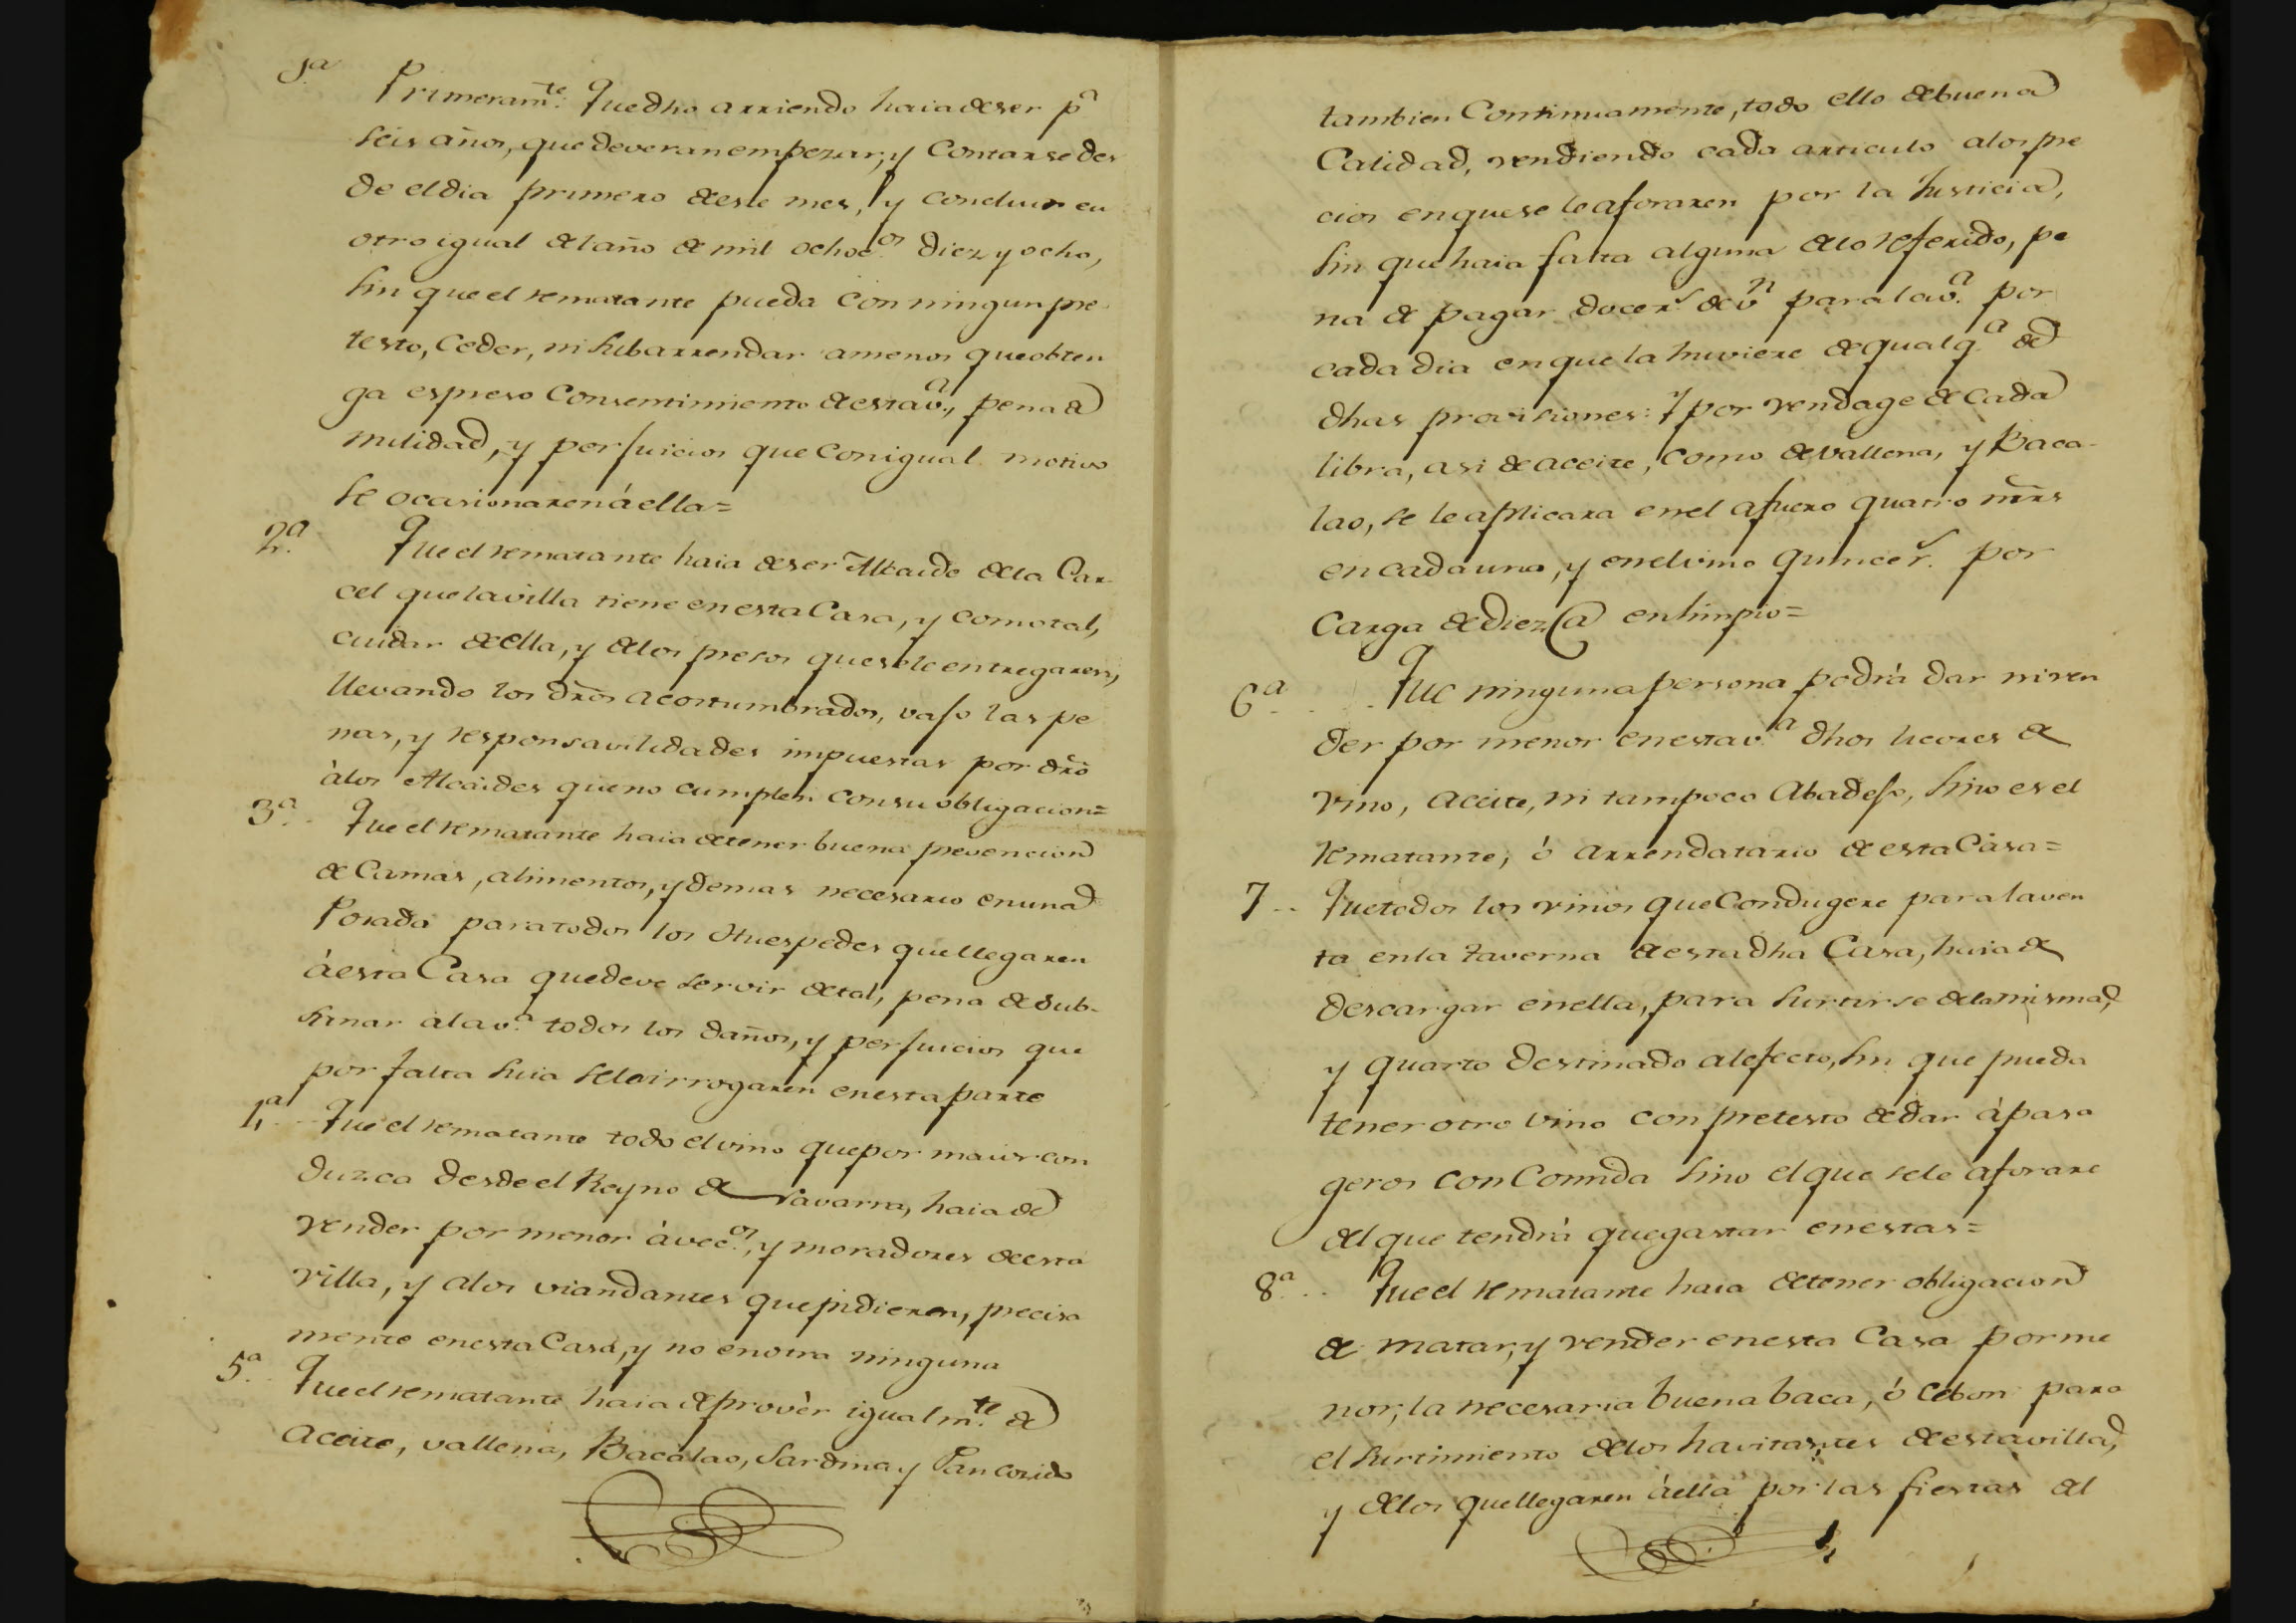 1ª Primeramte. Que dho arriendo haia de ser pª
seis años, que deveran empezar, y Contarse des
de el dia primero de este mes, y concluir en
otro igual del año de mil ochocos. diez y ocho,
sin que el rematante pueda con ningun pre
testo, Ceder, ni Subarrendar a menos que obten
ga espreso Consentimiento de esta vª., pena de
nulidad, y perjuicios que con igual motivo
se ocasionaren á ella=
2ª. Que el rematante haia de ser Alcaide de la Car
cel que la villa tiene en esta Casa, y como tal,
cuidar de ella, y de los presos que se le entregaren,
llevando los dros acostumbrados, vajo las pe
nas, y responsavilidades impuestas por dro
à los Alcaides que no cumplen con su obligacion=
3ª. Que el rematante haia de tener buena prevencion
de Camas, alimentos, y demas necesario en una
Posada para todos los Huespedes que llegaren
á esta Casa que deve servir de tal, pena de sub-
sanar a la vª. todos los daños, y perjuicios que
por falta suia se le irrogaren en esta parte
4ª Que el rematante todo el vino que por maior con
duzca desde el Reyno de Navarra, haia de
vender por menor á vecos., y moradores de esta
villa, y a los viandantes que pidieren, precisa
mente en esta Casa, y no en otra ninguna
5ª. Que el rematante haia de provèr igualmte. de
Aceite, vallena, Bacalao, Sardina y Pan cozido
tambien Continuamente, todo ello de buena
Calidad, vendiendo cada articulo a los pre
cios en que se le aforaren por la Justicia,
sin que haia falta alguna de lo referido, pe
na de pagar doce rs de vn para la vª. por
cada dia en que la huviere de qualqª. de
dhas provisiones: Y por vendage de Cada
libra, asi de aceite, como de vallena, y Baca-
lao, se le aplicara en el afuero quatro mrs
en cada una, y en el vino quince rs. por
Carga de diez @ en limpio=
6ª. Que ninguna persona podrá dar ni ven
der por menor en esta vª dhos licores de
vino, aceite, ni tampoco Abadejo, sino es el
rematante, ó arrendatario de esta Casa=
7.. Que todos los vinos que Condugere para la ven
ta en la taverna de esta dha Casa, haia de
descargar en ella, para surtirse de la misma,
y quarto destinado al efecto, sin que pueda
tener otro vino con pretesto de dar à pasa
geros con Comida sino el que se le aforare
del que tendrá que gastar en estas=
8ª. Que el rematante haia de tener obligacion
de matar, y vender en esta Casa por me
nor, la necesaria buena baca, ó cebon para
el surtimiento de los havitantes de esta villa,
y de los que llegaren á ella por las fiestas del